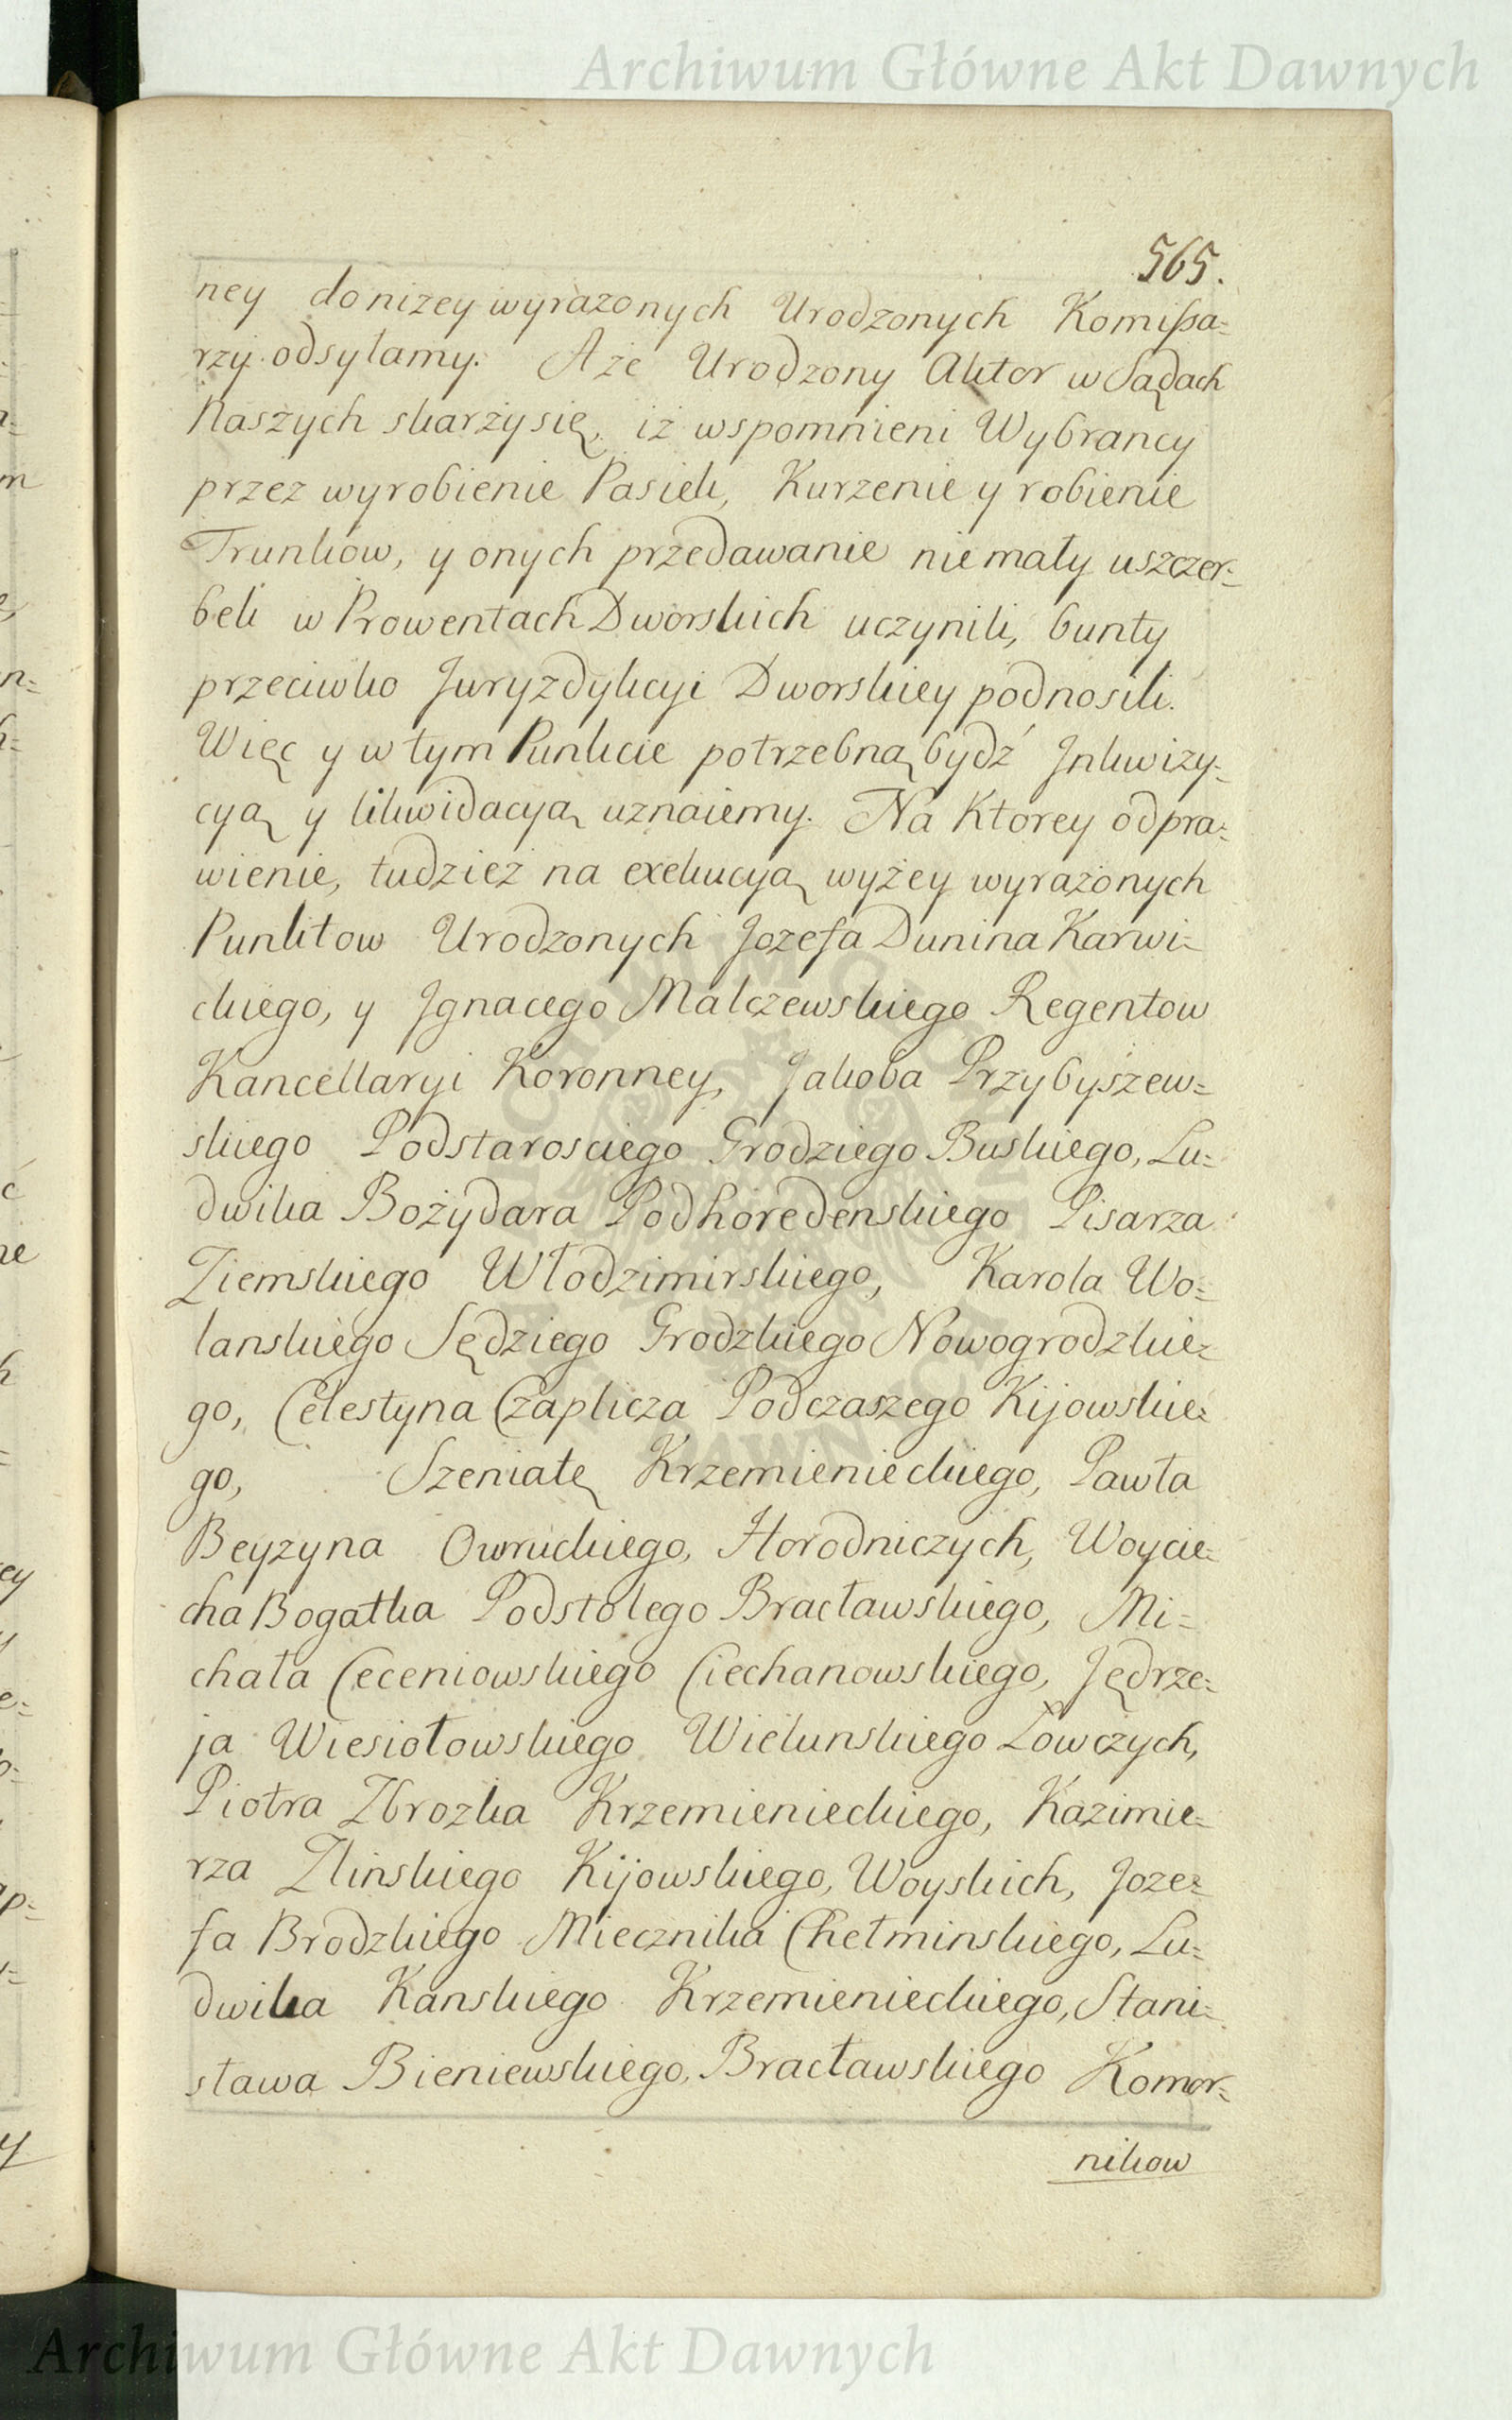 Archiwum Główne Akt Dawnych
565.
ney do niżey wyrażonych Urodzonych Komissa=
rzy odsyłamy. A że Urodzony Aktor w Sądach
Naszych skarży się, iż wspomnieni Wybrancy
przez wyrobienie Pasiek, Kurzenie y robienie
Trunków, y onych przedawanie nie mały uszczer=
bek w Prowentach Dworskich uczynili, bunty
przeciwko Juryzdykcyi Dworskiey podnosili.
Więc y w tym Punkcie potrzebną bydź Jnkwizy=
cyą y likwidacyą uznaiemy. Na Ktorey odpra=
wienie, tudzież na exekucyą wyżey wyrażonych
Punktow Urodzonych Jozefa Dunina Karwi=
ckiego, y Jgnacego Malczewskiego Regentow
Kancellaryi Koronney, Jakoba Przybyszew=
skiego Podstarosciego Grodziego Buskiego, Lu=
dwika Bożydara Podhoredenskiego Pisarza
Ziemskiego Włodzimirskiego, Karola Wo=
lanskiego Sędziego Grodzkiego Nowogrodzkie=
go, Celestyna Czaplicza Podczaszego Kijowskie=
go, Szeniatę Krzemienieckiego, Pawła
Beyzyna Owruckiego, Horodniczych, Woycie=
cha Bogatka Podstolego Bracławskiego, Mi=
chała Ceceniowskiego Ciechanowskiego, Jędrze=
ja Wiesiołowskiego Wielunskiego Łowczych,
Piotra Zbrozka Krzemienieckiego, Kazimie=
rza Zlinskiego Kijowskiego, Woyskich, Joze=
fa Brodzkiego Miecznika Chełminskiego, Lu=
dwika Kanskiego Krzemienieckiego, Stani=
sława Bieniewskiego, Bracławskiego Komor=
nikow
Archiwum Główne Akt Dawnych